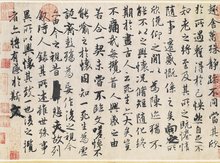 萬殊靜躁不同當其欣
於所遇暫得於己快然自足不
知老之將至及其所之既惓情
隨事遷感慨係之矣向之所
欣俛仰之閒以為陳迹猶不
能不以之興懷況脩短隨化終
期於盡古人云死生亦大矣豈
不痛哉每攬昔人興感之由
若合一契未嘗不臨文嗟悼不
能喻之於懷固知一死生為虛
誕齊彭殤為妄作後之視今
亦由今之視昔悲夫故列
敘時人錄其所述雖世殊事
異所以興懷其致一也後之攬
者亦將有感於斯文